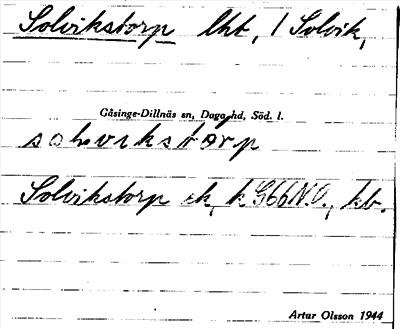 Solvikstorp lht, / Solvik,
Gåsinge-Dillnäs sn, Daga hd, Söd. l.
solvikstorp
Solvikstorp ek, k G66N.O., kb.
Artur Olsson 1944